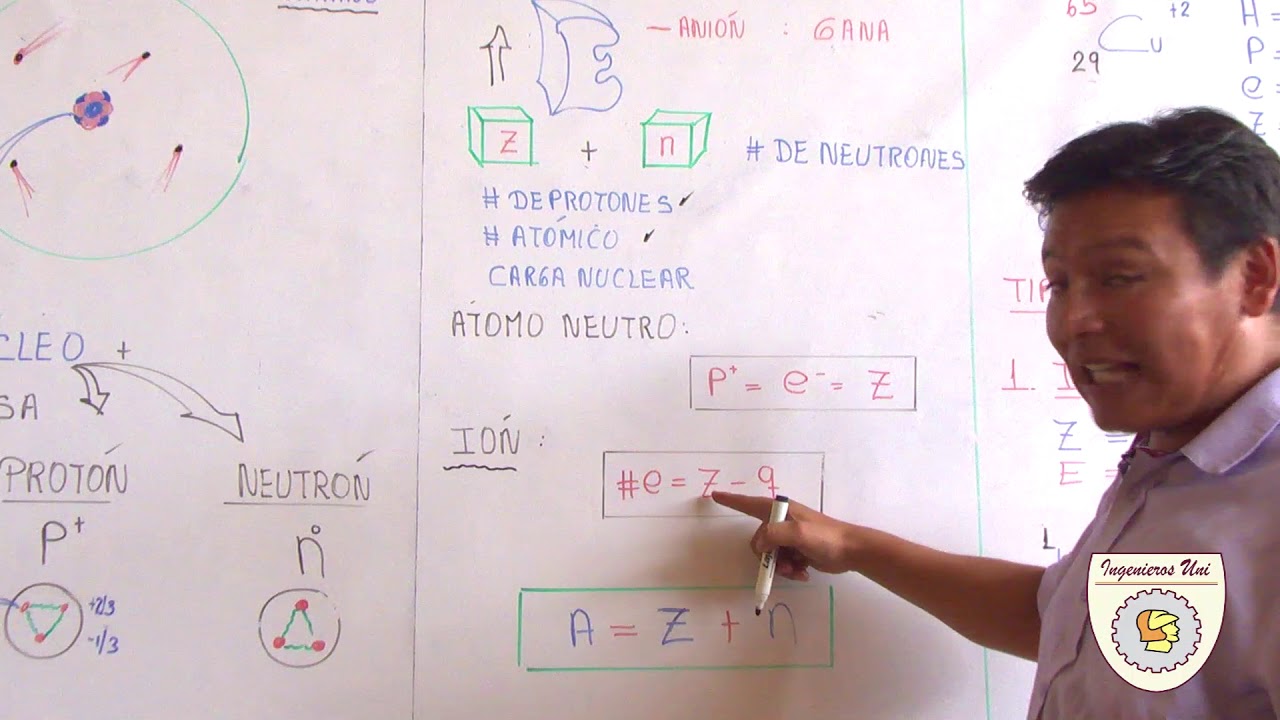 CLEO +
SA
PROTÓN
P⁺
+2/3
-1/3
NEUTRÓN
n°
E
— ANIÓN : GANA
Z + n # DE NEUTRONES
# DE PROTONES ✓
# ATÓMICO ✓
CARGA NUCLEAR
ÁTOMO NEUTRO:
P⁺ = e⁻ = Z
IÓN :
#e = Z - q
A = Z + n
65 +2
Cu
29
A =
P =
e =
Z
TIP
1. I
Z =
E =
1
Ingenieros Uni